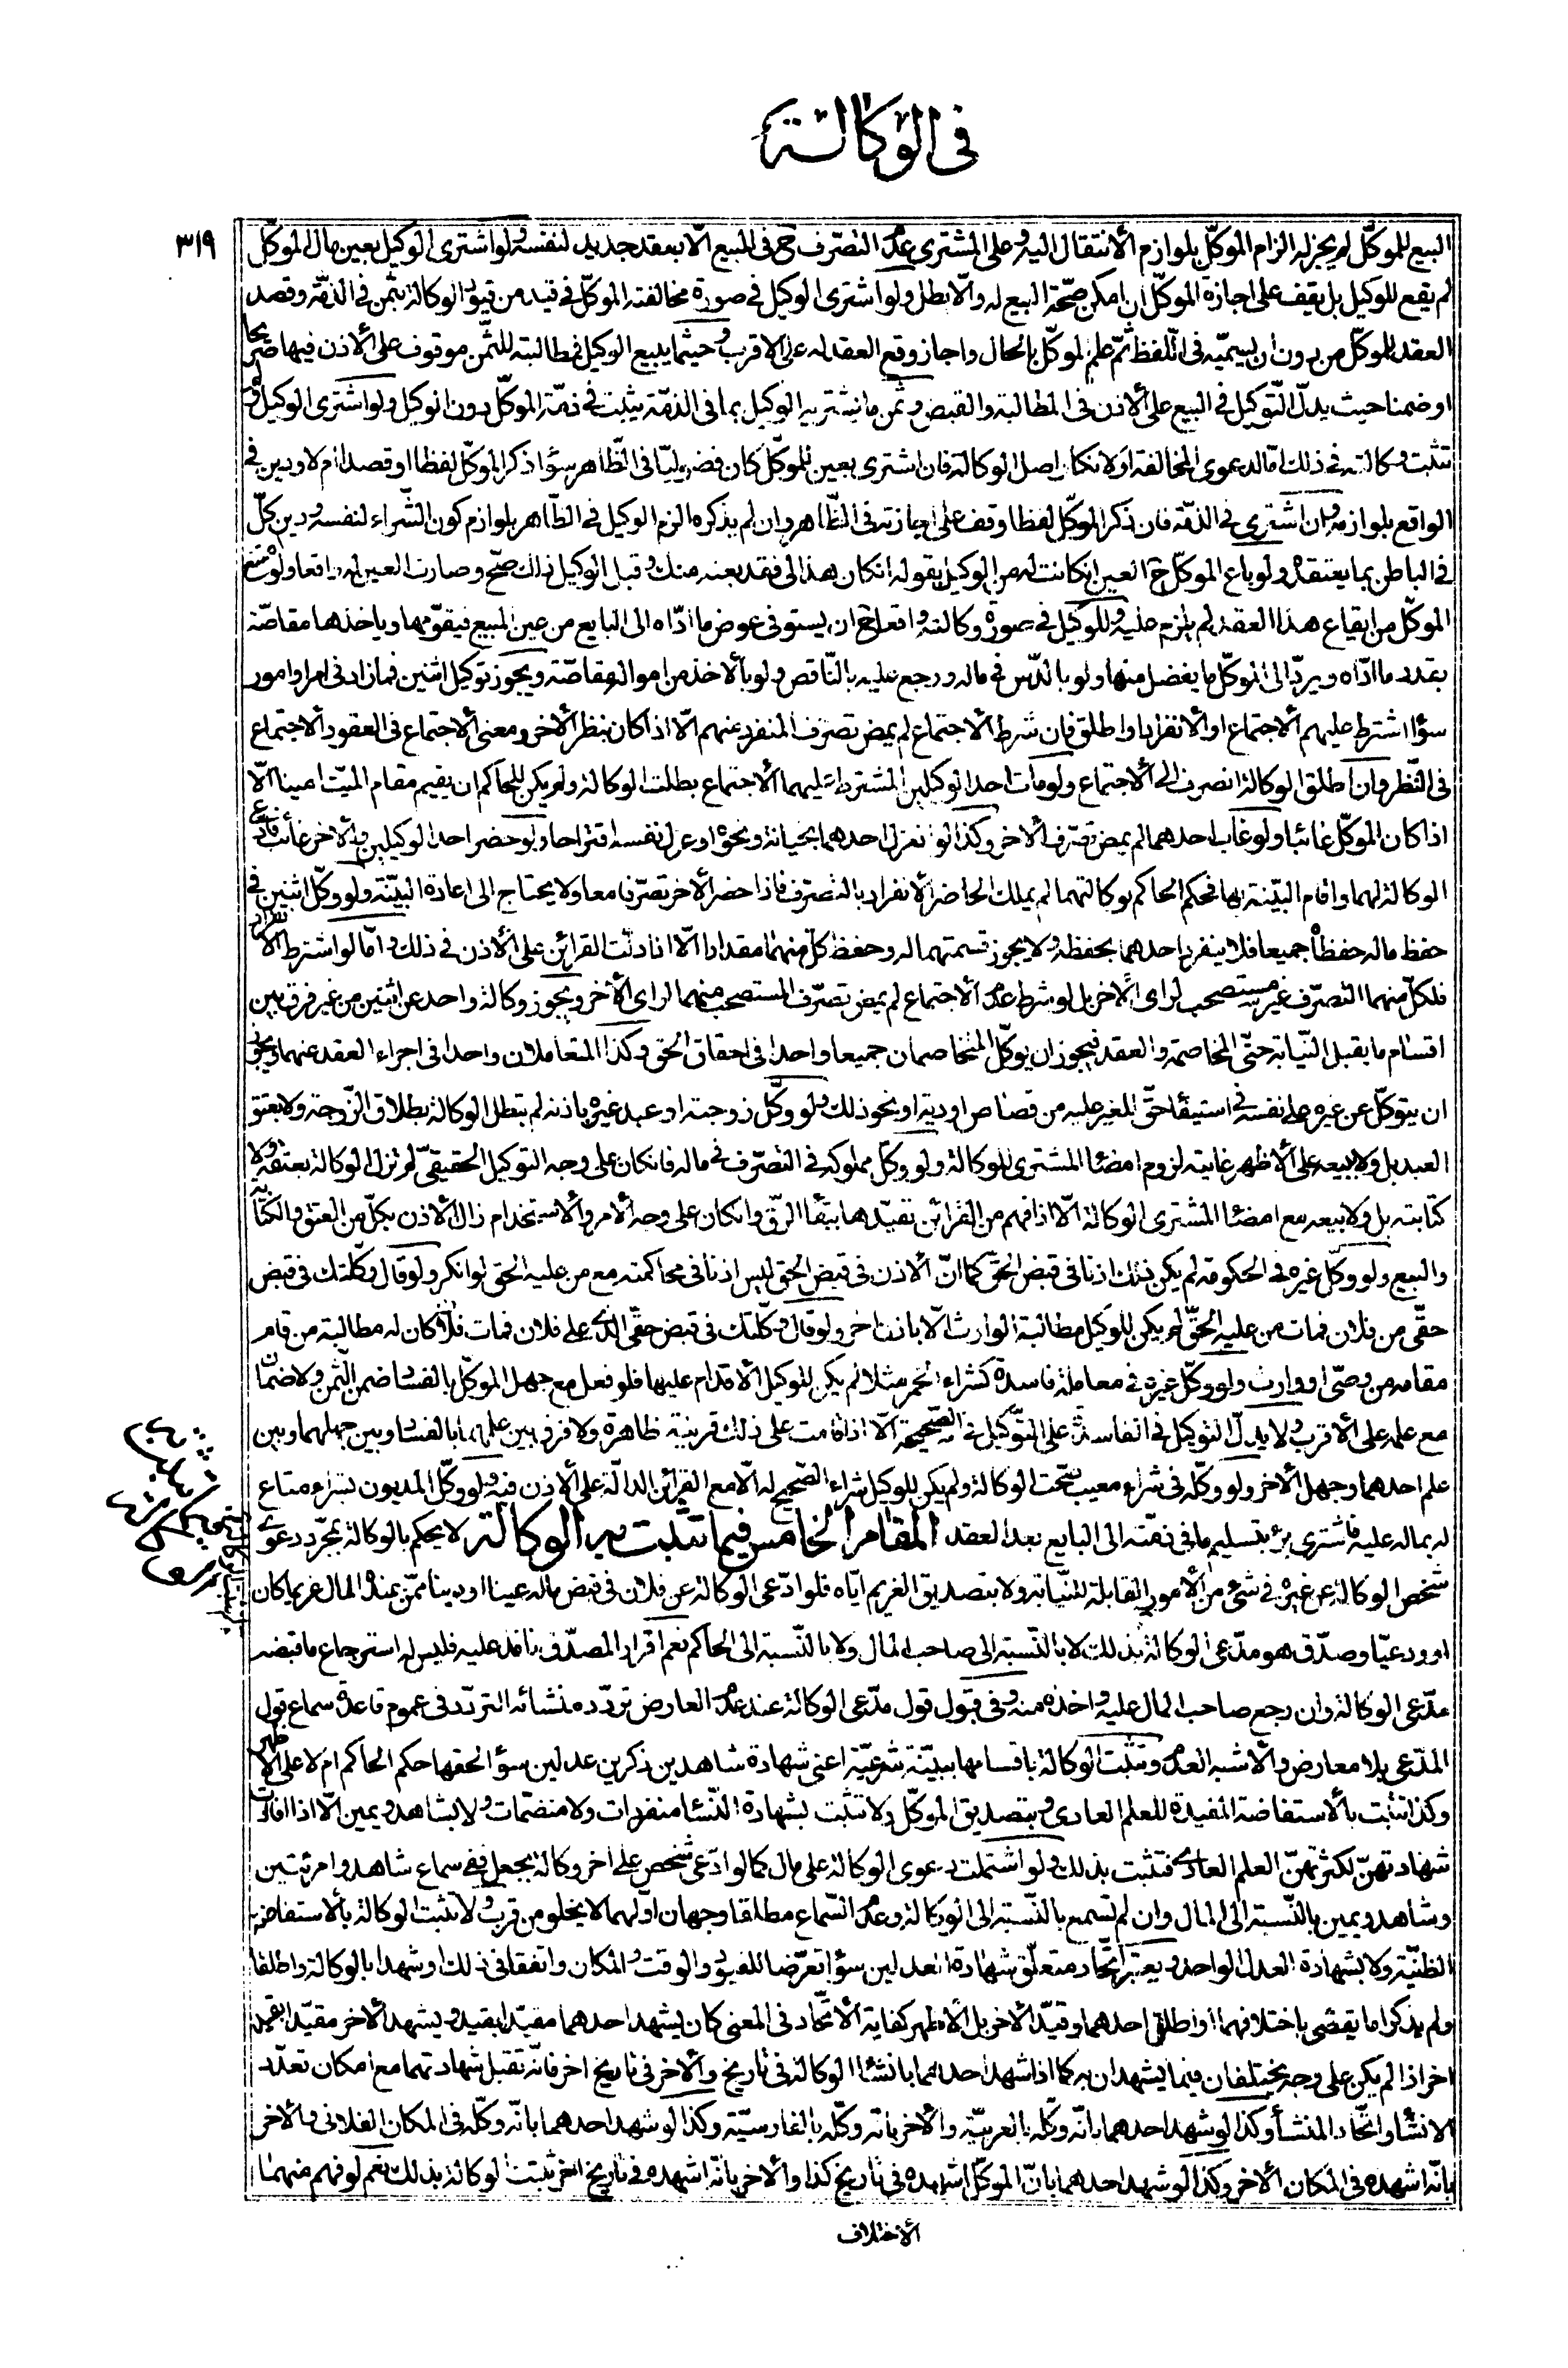 في الوكالة
٣١٩
البيع للموكّل لم يجز له الزام الموكّل بلوازم الأنتقال اليه وعلى المشترى عدم التصرّف ح في المبيع الّا بعقد جديد لنفسه ولو اشترى الوكيل بعين مال الموكّل
لم يقع للوكيل بل يقف على اجازة الموكّل ان امكن صحّة البيع له والّا بطل ولو اشترى الوكيل في صورة مخالفته الموكّل في قيد من قيود الوكالة بثمن في الذمّة وقصد
العقد للموكّل من دون ان يسميّه في اللّفظ ثمّ علم الموكّل بالحال واجاز وقع العقد له على الاقرب وحيثما يبيع الوكيل فمطالبته للثّمن موقوف على الأذن فيها صريحا
او ضمنا حيث يدلّ التّوكيل في البيع على الأذن في المطالبة والقبض وثمن ما يشتريه الوكيل بما في الذمّة يثبت في ذمّة الموكّل دون الوكيل ولو اشترى الوكيل ولم
تثبت وكالته في ذلك امّا لدعوى المخالفة او لانكار اصل الوكالة فان اشترى بعين للموكّل كان فضوليّا في الظّاهر سواء ذكر الموكّل لفظا او قصدا ام لا ودين في
الواقع بلوازمه وان اشترى في الذمّة فان ذكر الموكّل لفظا وقف على اجازته في الظّاهر وان لم يذكره الزم الوكيل في الظّاهر بلوازم كون الشّراء لنفسه ودين كلّ
في الباطن بما يعتقده ولو باع الموكّل ح العين ان كانت له من الوكيل بقوله ان كان هذا لي فقد بعته منك وقبل الوكيل ذلك صحّ وصارت العين له واقعا ولو امتنع
الموكّل من ايقاع هذا العقد لم يلزم عليه وللوكيل في صورة وكالته واقعا ح ان يستوفى عوض ما ادّاه الى البايع من عين المبيع فيقوّمها وياخذها مقاصّة
بقدر ما ادّاه ويردّ الى الموكّل ما يفضل منها ولو بالدّس في ماله ورجع عليه بالنّاقص ولو بالأخذ من امواله مقاصّة ويجوز توكيل اثنين فمازاد في امر او امور
سواء اشترط عليهم الأجتماع او الأنفراد او اطلق فان شرط الأجتماع لم يمض تصرّف المنفرد عنهم الّا اذا كان بنظر الأخر ومعنى الأجتماع في العقود الأجتماع
في النّظر وان اطلق الوكالة انصرف الى الأجتماع ولو مات احد الوكيلين المشترط عليهما الأجتماع بطلت الوكالة ولم يكن للحاكم ان يقيم مقام الميّت امينا الّا
اذا كان الموكّل غائبا ولو غاب احدهما لم يمض تصرّف الأخر وكذا لو انعزل احدهما بخيانة ونحوه او عزل نفسه اقتراحا ولو حضر احد الوكيلين والأخر غائب فادّعى
الوكالة لهما واقام البيّنة بها فحكم الحاكم بوكالتهما لم يملك الحاضر الأنفراد بالتصرّف فاذا حضر الأخر تصرّفا معا ولا يحتاج الى اعادة البيّنة ولو وكّل اثنين في
حفظ ماله حفظاه جميعا فلا ينفرد احدهما بحفظه ولا يجوز قسمتهما له وحفظ كلّ منهما مقدارا الّا اذا دلّت القرائن على الأذن في ذلك وامّا لو اشترط الأنفراد
فلكلّ منهما التصرّف غير مستصحب لراى الأخر بل لو شرط عدم الأجتماع لم يمض تصرّف المستصحب منهما لراى الأخر ويجوز وكالة واحد عن اثنين من غير فرق بين
اقسام ما يقبل النّيابة حتّى المخاصمة والعقد فيجوز ان يوكّل المتخاصمان جميعا واحدا في احقاق الحق وكذا المتعاملان واحدا في اجراء العقد عنهما ويجوز
ان يتوكّل عن غيره على نفسه في استيفاء حقّ الغير عليه من قصاص او دية او نحو ذلك ولو وكّل زوجته او عبد غيره باذنه لم تبطل الوكالة بطلاق الزّوجة ولا بعتق
العبد بل ولا ببيعه على الأظهر غايته لزوم امضاء المشترى للوكالة ولو وكّل مملوكه في التصرّف في ماله فان كان على وجه التوكيل الحقيقيّ لم تزل الوكالة بعتقه ولا
كتابته بل ولا ببيعه مع امضاء المشترى الوكالة الّا اذا فهم من القرائن تقيّدها ببقاء الرّق وان كان على وجه الأمر والأستخدام زال الأذن بكلّ من العتق والكتابة
والبيع ولو وكّل غيره في الحكومة لم يكن ذلك اذنا في قبض الحقّ كما انّ الأذن في قبض الحق ليس اذنا في محاكمته مع من عليه الحق لو انكر ولو قال وكّلتك في قبض
حقّى من فلان فمات من عليه الحقّ لم يكن للوكيل مطالبة الوارث الّا باذن اخر ولو قال وكّلتك في قبض حقّى الّذى على فلان فمات فلان كان له مطالبة من قام
مقامه من وصّى او وارث ولو وكّل غيره في معاملة فاسدة كشراء الخمر مثلا لم يكن للوكيل الأقدام عليها فلو فعل مع جهل الموكّل بالفساد ضمن الثّمن ولا ضمان
مع علمه على الأقرب ولا يدلّ التوكيل في الفاسدة على التّوكيل في الصّحيحة الّا اذا قامت على ذلك قرينة ظاهرة ولا فرق بين علمهما بالفساد وبين جهلهما وبين
علم احدهما وجهل الأخر ولو وكّله في شراء معيب صحّت الوكالة ولم يكن للوكيل شراء الصّحيح له الّا مع القرائن الدالّة على الأذن فيه ولو وكّل المديون بشراء متاع
له بماله عليه فاشترى برئ بتسليم ما في ذمّته الى البايع بعد العقد المقام الخامس فيما تثبت به الوكالة لا يحكم بالوكالة بمجرّد دعوى
شخص الوكالة عن غيره في شئ من الأمور القابلة للنّيابة ولا بتصديق الغريم ايّاه فلو ادّعى الوكالة عن فلان في قبض ماله عينا او دينا ممّن عنده المال غريما كان
او ودعيّا وصدّق هو مدّعى الوكالة بذلك لا بالنّسبة الى صاحب المال ولا بالنّسبة الى الحاكم نعم اقرار المصدّق نافذ عليه فليس له استرجاع ما قبضه
مدّعى الوكالة وان رجع صاحب المال عليه واخذه منه وفي قبول قول مدّعى الوكالة عند عدم العارض تردّد منشائه التردّد في عموم قاعدة سماع قول
المدّعى بلا معارض والأشبه العدم وتثبت الوكالة باقسامها ببيّنة شرعيّة اعنى شهادة شاهدين ذكرين عدلين سواء لحقها حكم الحاكم ام لا على الأظهر
وكذا تثبت بالأستفاضة المفيدة للعلم العادى وبتصديق الموكّل ولا تثبت بشهادة النّساء منفردات ولا منضمّات ولا بشاهد ويمين الّا اذا افادت
شهادتهنّ لكثرتهنّ العلم العادى فتثبت بذلك ولو اشتملت دعوى الوكالة على مال كما لو ادّعى شخص على اخر وكالة بجعل ففي سماع شاهد وامرئتين
وشاهد ويمين بالنّسبة الى المال وان لم تسمع بالنّسبة الى الوكالة وعدم السّماع مطلقا وجهان اوّلهما لا يخلو من قرب ولا تثبت الوكالة بالأستفاضة
الظنّيّة ولا بشهادة العدل الواحد ويعتبر اتّحاد متعلّق شهادة العدلين سواء تعرّضا للقيود والوقت والمكان واتفقا في ذلك او شهدا بالوكالة واطلقا
ولم يذكرا ما يقضى باختلافهما او اطلق احدهما وقيّد الأخر بل الأظهر كفاية الأتّحاد في المعنى كان يشهد احدهما مقيّدا بقيد ويشهد الأخر مقيّدا بقيد
اخر اذا لم يكن على وجه يختلفان فيما يشهدان به كما اذا شهد احدهما بانشاء الوكالة في تاريخ والأخر في تاريخ اخر فانّه تقبل شهادتهما مع امكان تعدّد
الانشاء واتّحاد المنشأ وكذا لو شهد احدهما بانّه وكّله بالعربيّة والأخر بانّه وكّله بالفارسيّة وكذا لو شهد احدهما بانّه وكّله في المكان الفلانى والأخر
بانّه اشهده في المكان الأخر وكذا لو شهد احدهما بانّ الموكّل اشهده في تاريخ كذا والأخر بانّه اشهده في تاريخ اخر ثبتت الوكالة بذلك نعم لو فهم منهما
الأختلاف